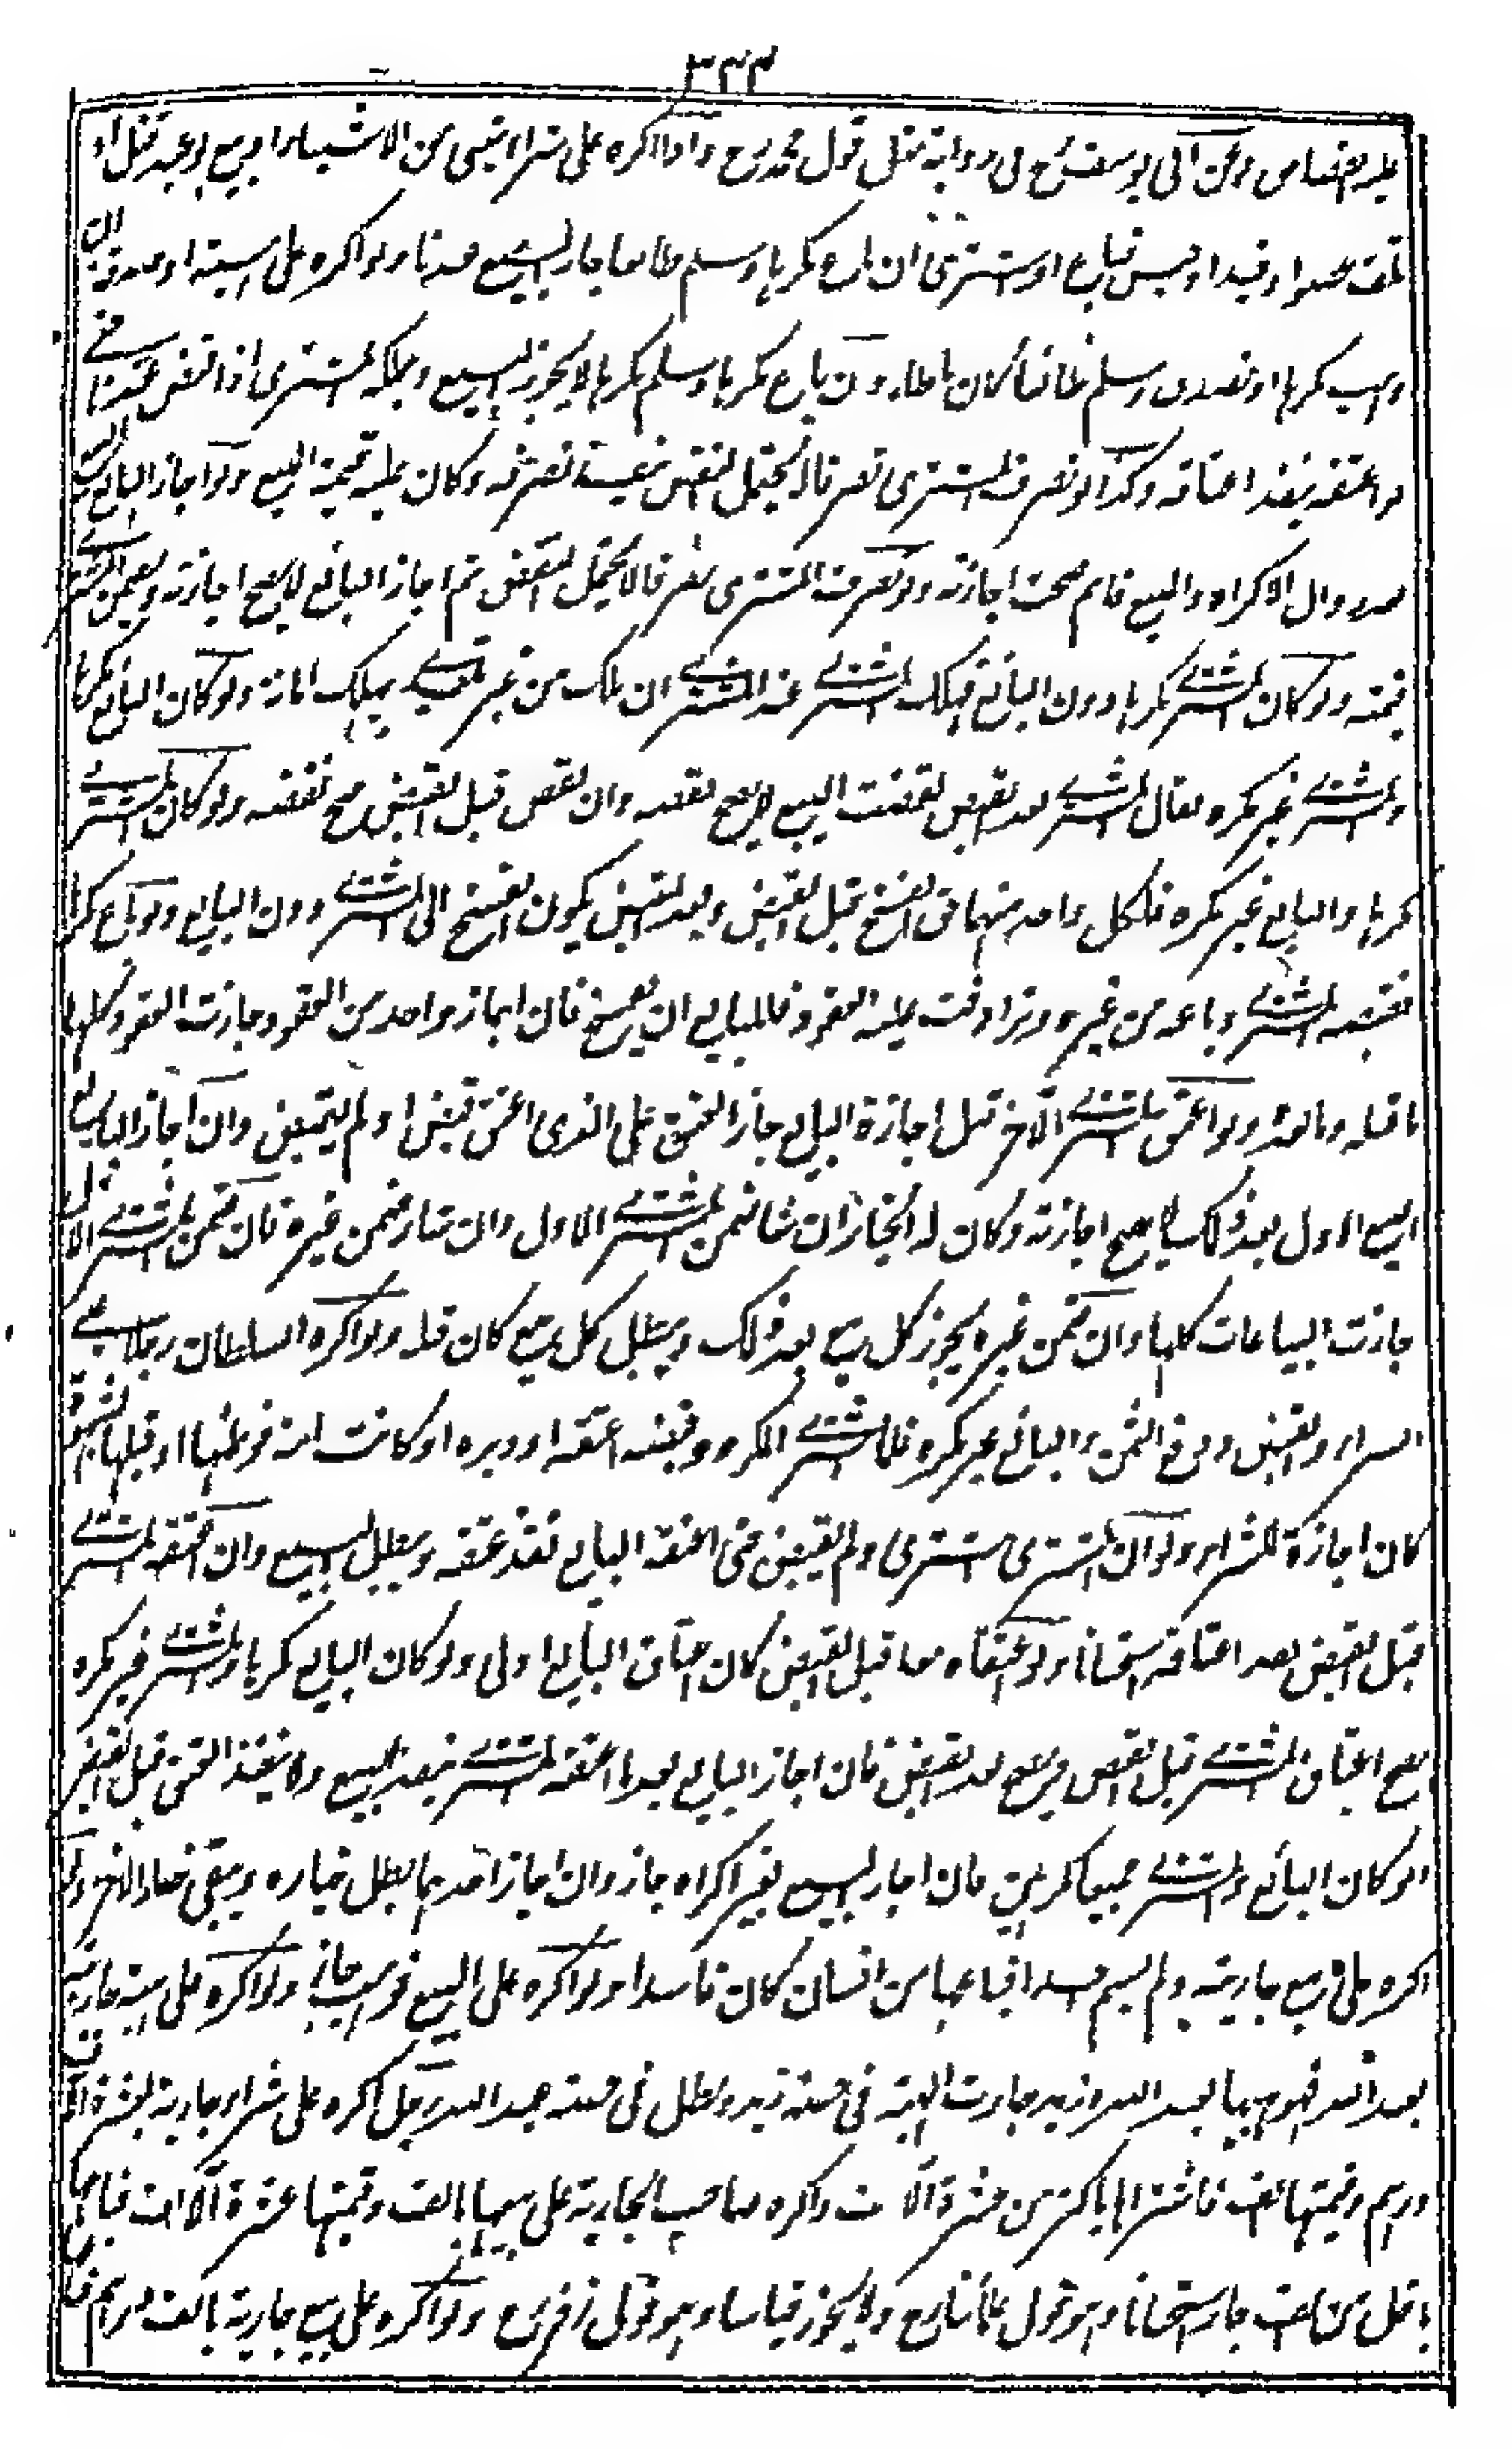 ٣٤٤
عليه القصاص وعن أبي يوسف رح في رواية مثل قول محمد رح وإذا أكره على شراء شيء من الأشياء أو بيع بوعيد قتل أو
تلف عضو أو قيد أو حبس فباع أو اشترى إن باع مكرها وسلم طائعا جاز البيع عندنا ولو أكره على الهبة أو الصدقة
وهب مكرها أو تصدق وسلم طائعا كان باطلا وإن باع مكرها وسلم مكرها لا يجوز البيع ويملكه المشتري إذا القبض عندنا حتى
لو أعتقه ينفذ إعتاقه وكذا لو تصرف المشتري تصرفا لا يحتمل النقض تصرفه وكان عليه قيمة المبيع ولو أجاز البائع البيع
بعد زوال الإكراه والمبيع قائم صحت إجازته ولو تصرف المشتري تصرفا لا يحتمل النقض ثم أجاز البائع لا يصح إجازته ويضمن المشتري
قيمته ولو كان المشتري مكرها دون البائع فهلك المشترى عند المشتري إن هلك من غير تعد يهلك أمانة ولو كان البائع مكرها
والمشتري غير مكره فقال المشتري بعد القبض نقضت البيع لا يصح نقضه وإن نقض قبل القبض صح نقضه ولو كان المشتري
مكرها والبائع غير مكره فلكل واحد منهما حق الفسخ قبل القبض وبعد القبض يكون الفسخ إلى المشتري دون البائع ولو باع مكرها
فقبضه المشتري وباعه من غيره وترادفت عليه العقود فللبائع أن يفسخ فإن أجاز واحد من العقود جازت العقود كلها
ما قبله وما بعده ولو أعتق المشتري الآخر قبل إجازة البائع جاز العتق على الذي أعتق قبض أو لم يقبض وإن أجاز البائع
البيع الأول بعد ذلك لا يصح إجازته وكان له الخيار إن شاء ضمن المشتري الأول وإن شاء ضمن غيره فإن ضمن المشتري الأول
جازت البياعات كلها وإن ضمن غيره يجوز كل بيع بعد ذلك ويبطل كل بيع كان قبله ولو أكره السلطان رجلا على
الشراء والقبض ودفع الثمن والبائع غير مكره فلما اشترى المكره وقبضه أعتقه أو دبره أو كانت أمة فوطئها أو قبلها بشهوة
كان إجازة للشراء ولو أن المشتري اشترى ولم يقبض حتى أعتقه البائع نفذ عتقه ويبطل البيع وإن أعتقه المشتري
قبل القبض نفذ إعتاقه استحسانا ولو أعتقاه معا قبل القبض كان إعتاق البائع أولى ولو كان البائع مكرها والمشتري غير مكره
يصح إعتاق المشتري قبل القبض بعد القبض فإن أجاز البائع بعد ما أعتقه المشتري ينفذ البيع ولا ينفذ العتق قبل القبض
ولو كان البائع والمشتري جميعا مكرهين فإن أجاز البيع بغير إكراه جاز وإن أجاز أحدهما بطل خياره ويبقى خيار الآخر ولو
أكره على بيع جاريته ولم يسم أحدا فباعها من إنسان كان فاسدا ولو أكره على البيع فوهب جاز ولو أكره على هبة جاريته
بعبد الله فوهبها بعبد الله وزيد جازت الهبة في حصة زيد وبطل في حصة عبد الله رجل أكره على شراء جارية بعشرة آلاف
درهم وقيمتها ألف فاشتراها بأكثر من عشرة آلاف وأكره صاحب الجارية على بيعها بألف وقيمتها عشرة آلاف فباعها
بأقل من ألف جاز استحسانا وهو قول علمائنا رح ولا يجوز قياسا وهو قول زفر رح ولو أكره على بيع جارية بألف درهم فباع